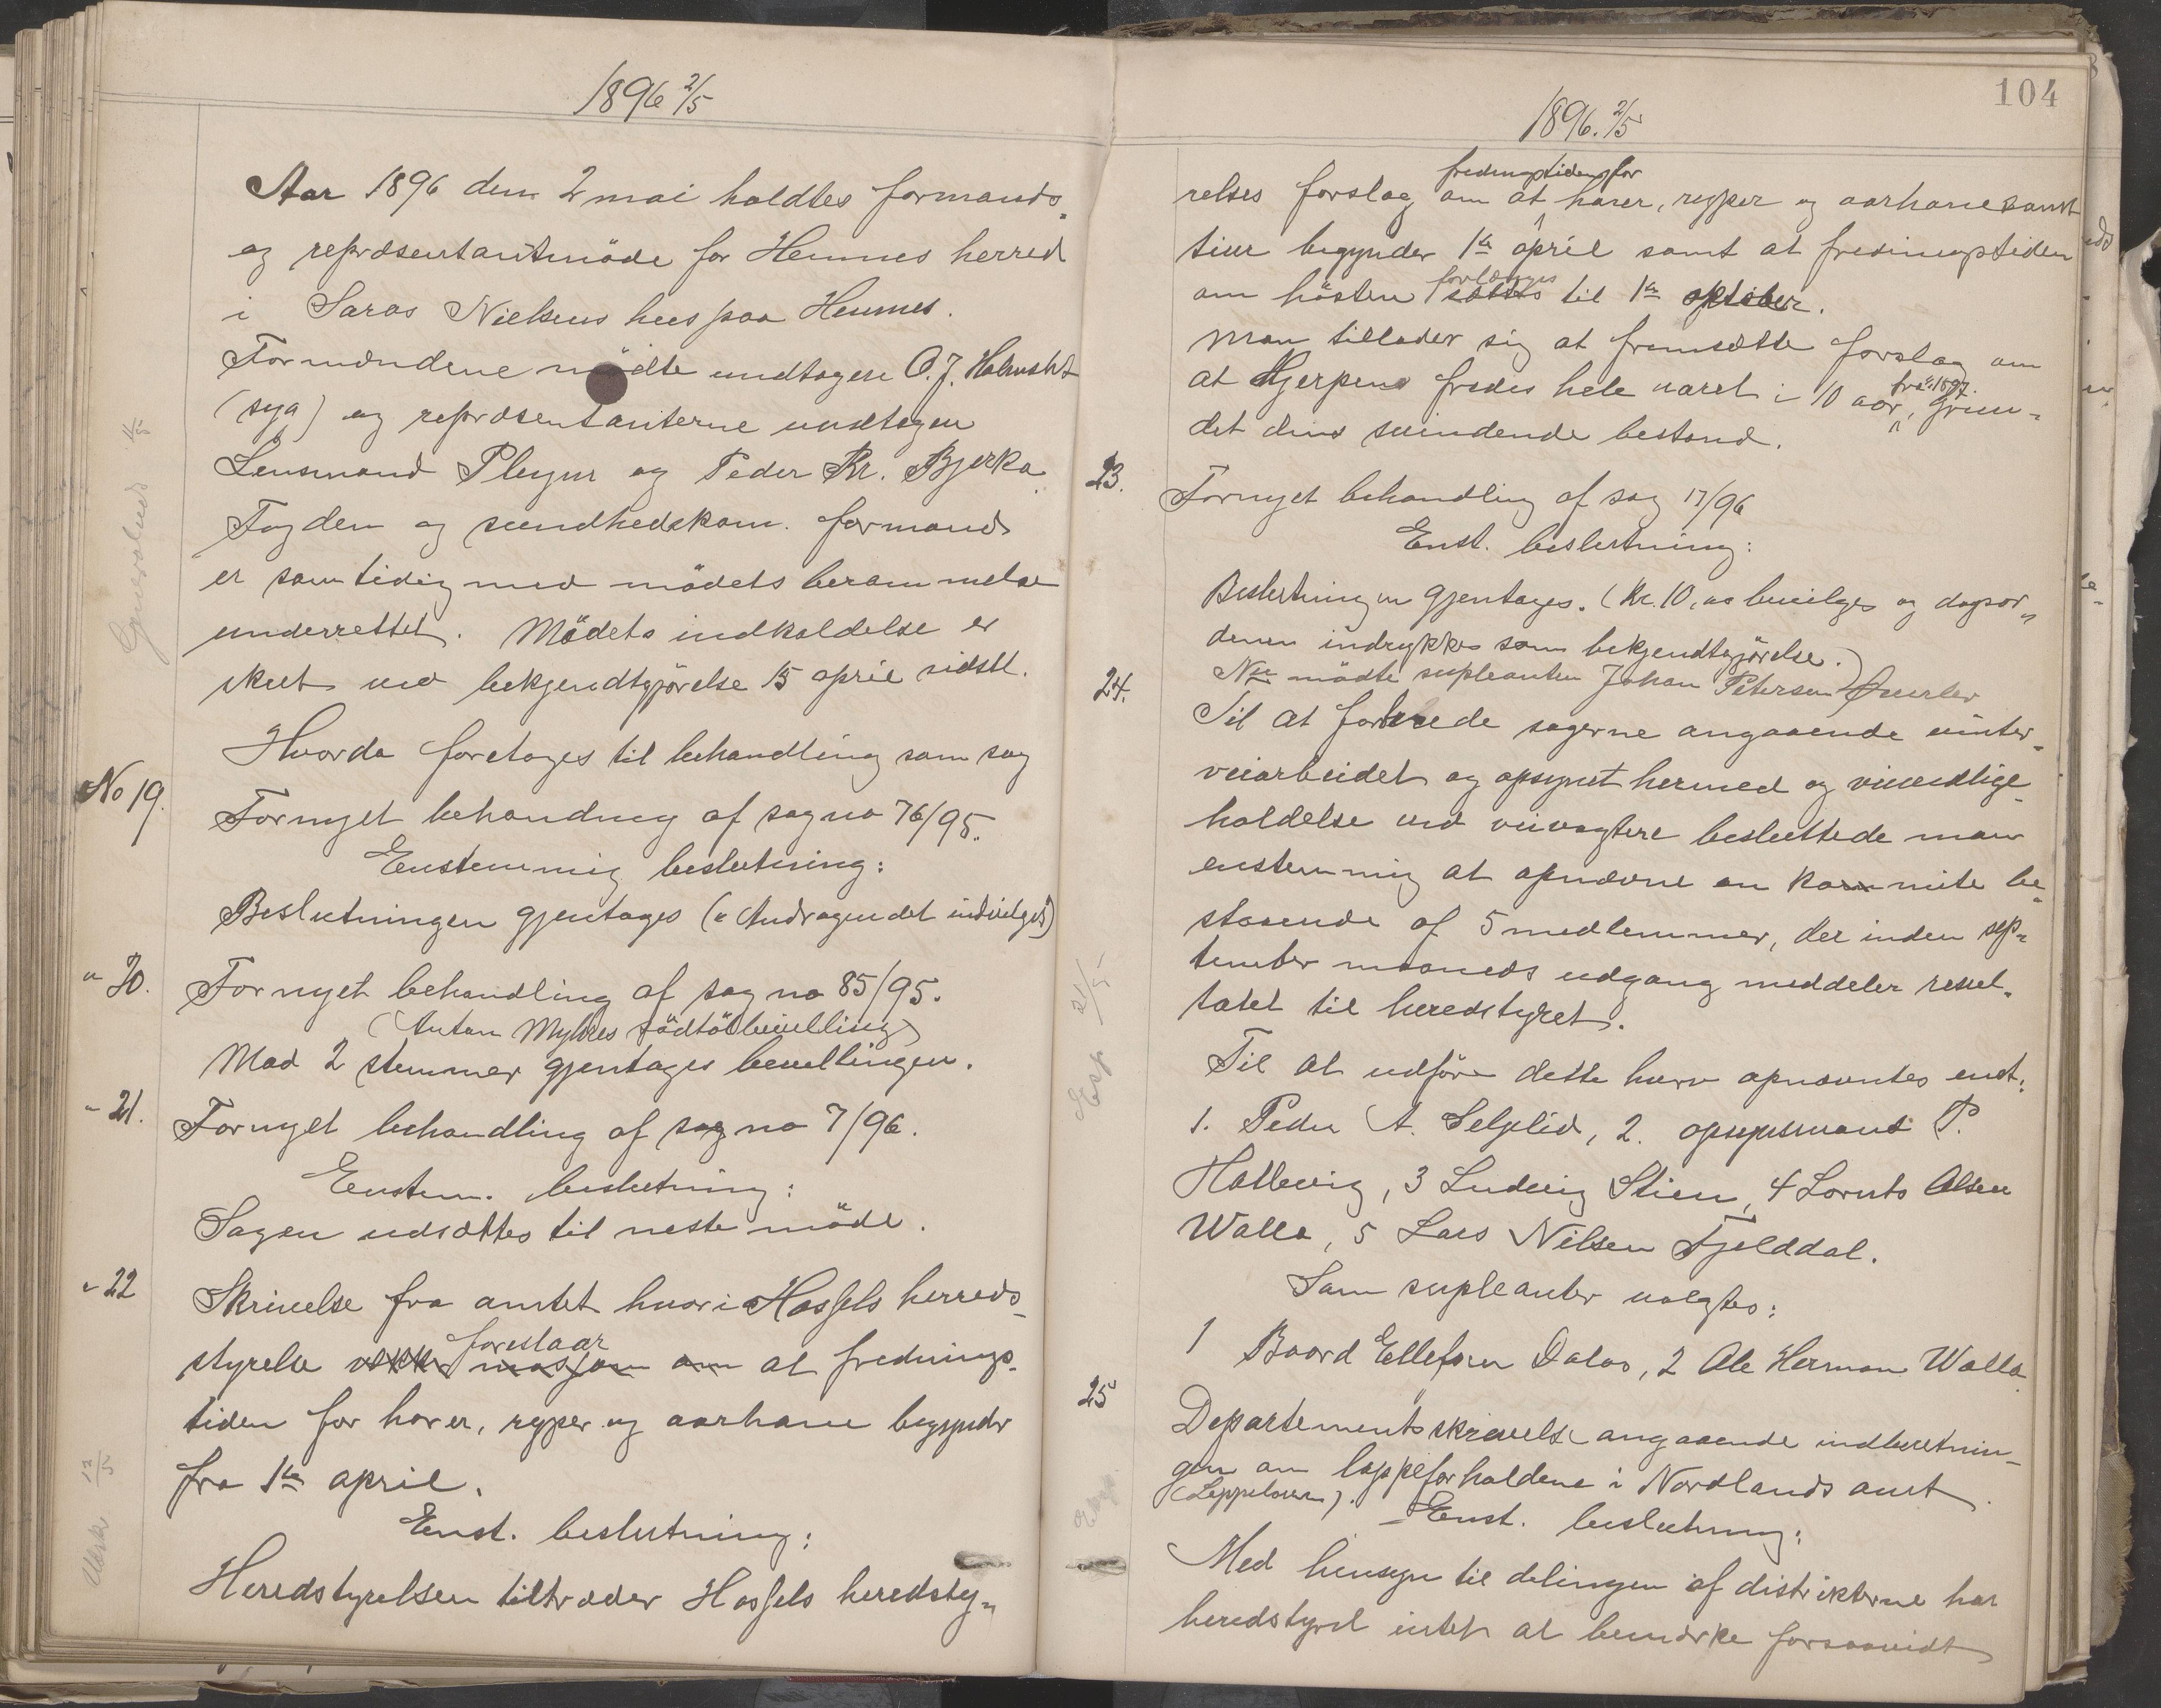 1896 2/5
Aar 1896 den 2 mai holdtes formands-
og repræsentantmöde for Hemnes herred
i Saras Nielsens hus paa Hemnes.
Formændene mödte undtagen O. J.
(syg) og repræsentanterne undtagen
Lensmand Pleym og Peder Kr. Bjerka.
Fogden og sundhedskom. formand
er samtidig med mödets berammelse
underrettet. Mödets indkaldelse er
skeet ved bekjendtgjörelse 15 april sidstl.
Hvorda foretages til behandling som sag
No 19.
Fornyet behandling af sag no 76/95.
Enstemmig beslutning:
Beslutningen gjentages (" Andragendet indvilges")
" 20.
Fornyet behandling af sag no 85/95.
(Anton Myhres födtölbevilling)
Med 2 stemmer gjentages bevillingen.
" 21.
Fornyet behandling af sag no 7/96.
Enstem. beslutning:
Sagen udsættes til neste möde.
" 22
Skrivelse fra amtet hvori Hassels herreds-
foreslaar
styrelse at frednings-
tiden for harer, ryper og aarhane begynder
fra 1ste april.
Enst. beslutning:
Heredstyrelsen tiltræder Hassels heredsty-
104
1896. 2/5
fredningstiden for
relses forslag om at harer, ryper og aarhane samt
tiur begynder 1ste april samt at fredningstiden
forlænges
om hösten til 1ste oktober.
Man tillader sig at fremsætte forslag om
at Hjerpen fredes hele aaret i 10 aar, fra 1897. Grun-
det dens svindende bestand.
23.
Fornyet behandling af sag 17/96
Enst. beslutning:
Beslutningen gjentages. (Kr. 10,00 bevilges og dagsor-
denen indrykkes som bekjendtgjörelse.)
Nu mödte supleanten Johan Petersen
24.
Til at forberede sagerne angaaende vinter-
veiarbeidet og opsynet hermed og veivedlige-
holdelse ved veivogtere besluttede man
enstemmig at opnævne en kommite be-
staaende af 5 medlemmer, der inden sep-
tember maaneds udgang meddeler resul-
tatet til heredstyret.
Til at udföre dette hverv opnævntes enst:
1. Peder A. Selfslid, 2. opsynsmand P.
Hattevig, 3 Ludvig Stien, 4 Lornts Olsen
Walla, 5 Lars Nilsen Fjelddal.
Som supleanter valgtes:
1 Baard Ellefsen Dalos, 2 Ole Herman Walla
25
Departementsskrivelse angaaende indberetnin-
gen om lappeforholdene i Nordlands amt.
(Lappeloven). Enst. beslutning:
Med hensyn til delingen af distrikterne har
heredstyret intet at bemærke forsaavidt